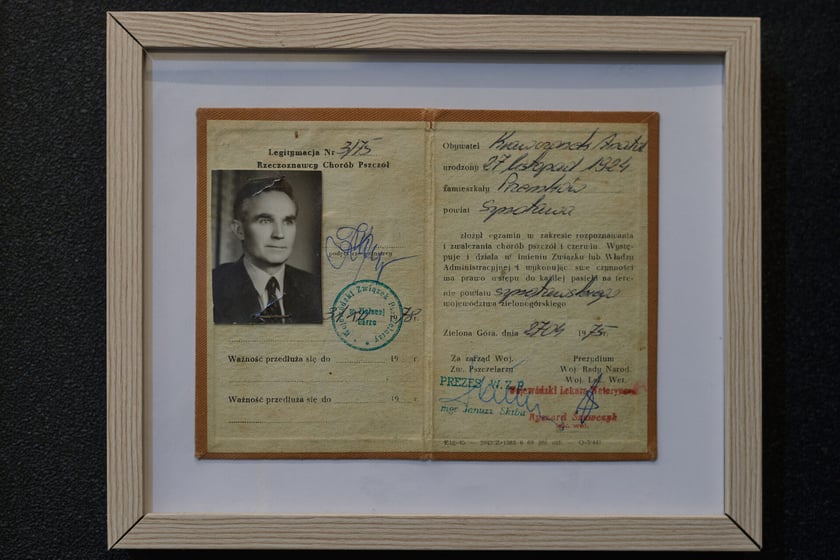 Legitymacja Nr 3/75
Rzeczoznawcy Chorób Pszczół
Wojewódzki Związek Pszczelarzy
w Zielonej
Górze
31 78r.
Ważność przedłuża się do 19 r.
Ważność przedłuża się do 19 r.
Obywatel
urodzony 27 listopad 1924
zamieszkały Przemków
powiat Szprotawa
złożył egzamin w zakresie rozpoznawania
i zwalczania chorób pszczół i czerwiu. Wystę-
puje i działa w imieniu Związku lub Władzy
Administracyjnej i wykonując swe czynności
ma prawo wstępu do każdej pasieki na tere-
nie powiatu szprotawskiego
województwa zielonogórskiego
Zielona Góra, dnia 27 04 1975r.
Za zarząd Woj.
Zw. Pszczelarzy
Prezydium
Woj. Rady Narod.
Woj. Lek. Wet.
PREZES W.Z.P.
mgr Janusz Skiba
Wojewódzki Lekarz Weterynarii
Ryszard
lek. wet.